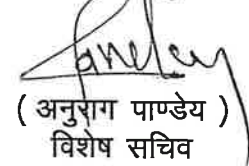 ( अनुराग पाण्डेय )
विशेष सचिव